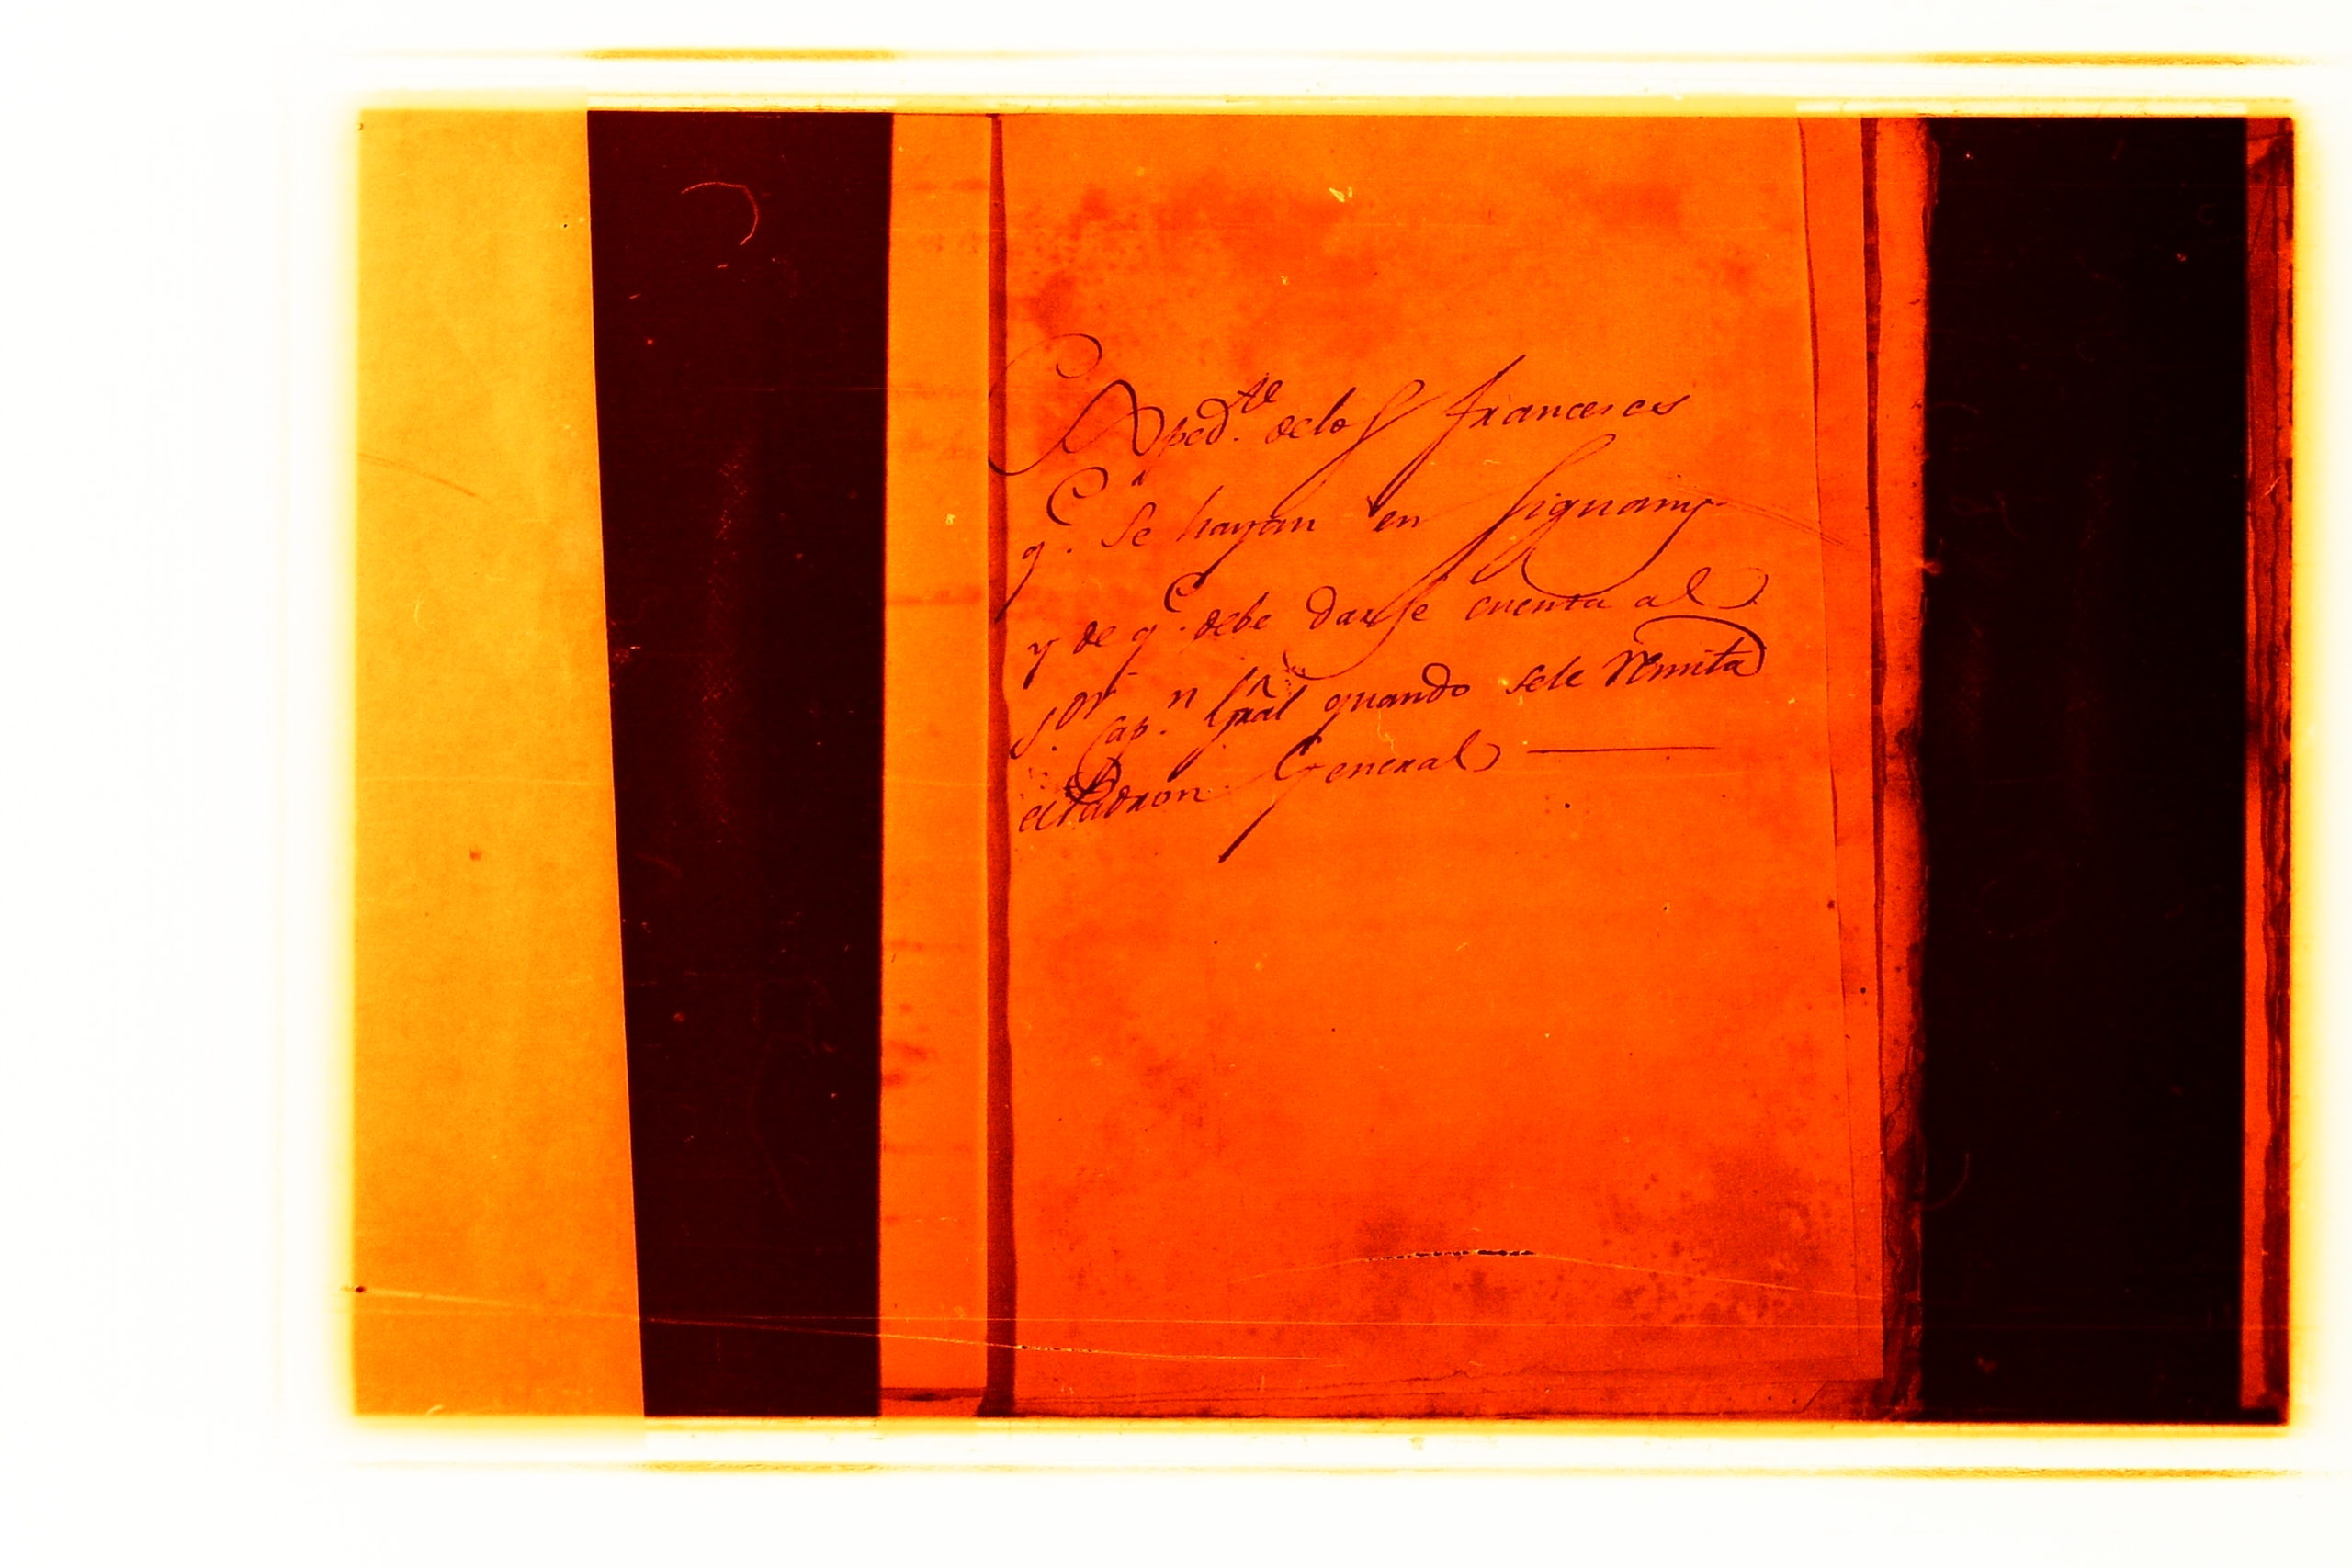 Exped.te delos franceses
q.e se hayan en Siguainy
y de q.e debe darse cuenta al
S.or Cap.n Gral quando sele remita
el Padron General